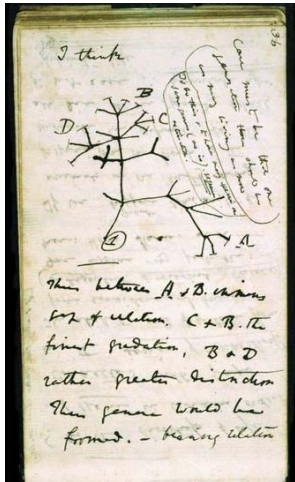 I think
B
C
D
A
1
Case must be that one
generation then should be
as many living as now
To do this & to have many species in
same genus (as is) requires
extinction
36
Thus between A & B. immens
gap of relation. C & B. the
finest gradation, B & D
rather greater distinction
Thus genera would be
formed. — bearing relation